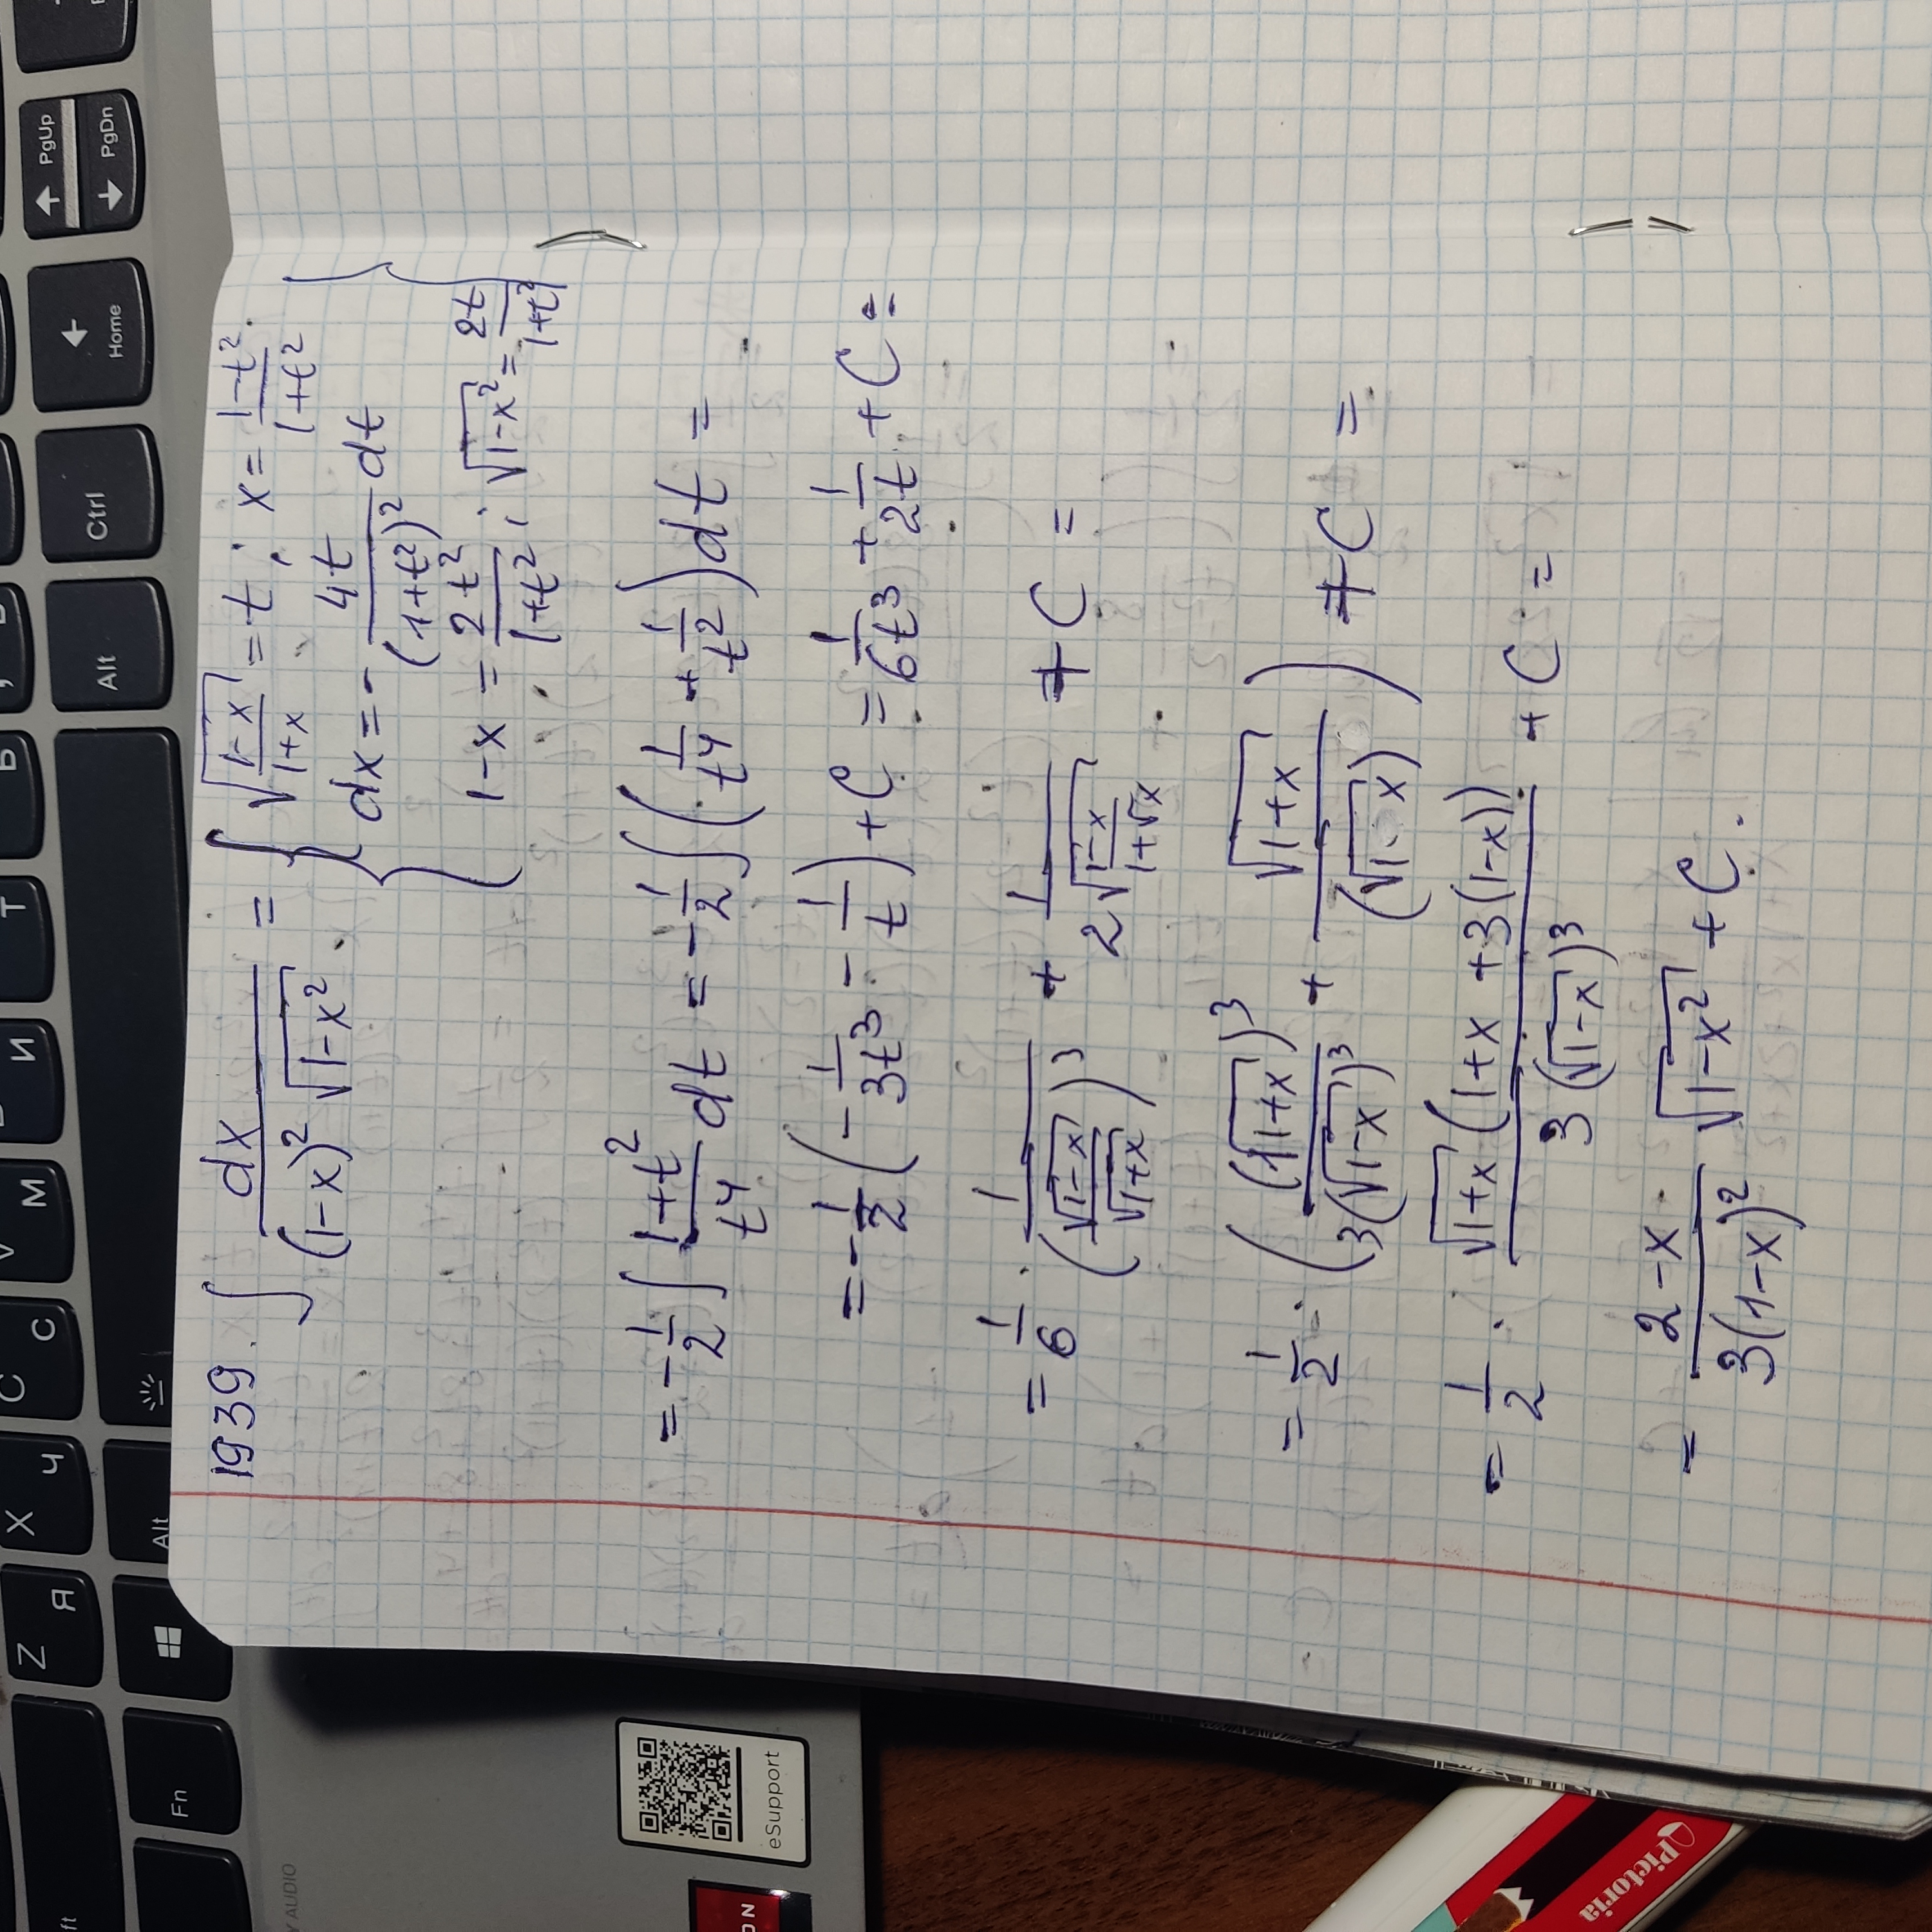 ft Z Я X Ч C С V М И Т Ь
Fn Alt Alt Ctrl Home PgUp PgDn
Y AUDIO
eSupport
ON
Pictoria
1939. ∫ dx / ((1-x)² √(1-x²)) = { √((1-x)/(1+x)) = t ; x = (1-t²)/(1+t²)
dx = - 4t/(1+t²)² dt
1-x = 2t²/(1+t²) ; √(1-x²) = 2t/(1+t²) }
= -1/2 ∫ (1+t²)/t⁴ dt = -1/2 ∫ (1/t⁴ + 1/t²) dt =
= -1/2 (-1/(3t³) - 1/t) + C = 1/(6t³) + 1/(2t) + C =
= 1/6 · 1/(√(1-x)/√(1+x))³ + 1/(2√((1-x)/(1+√x))) + C =
= 1/2 · ((√(1+x))³/(3(√(1-x))³) + √(1+x)/(√(1-x))) + C =
= 1/2 · √(1+x) (1+x + 3(1-x)) / (3(√(1-x))³) + C =
= (2-x)/(3(1-x)²) √(1-x²) + C.